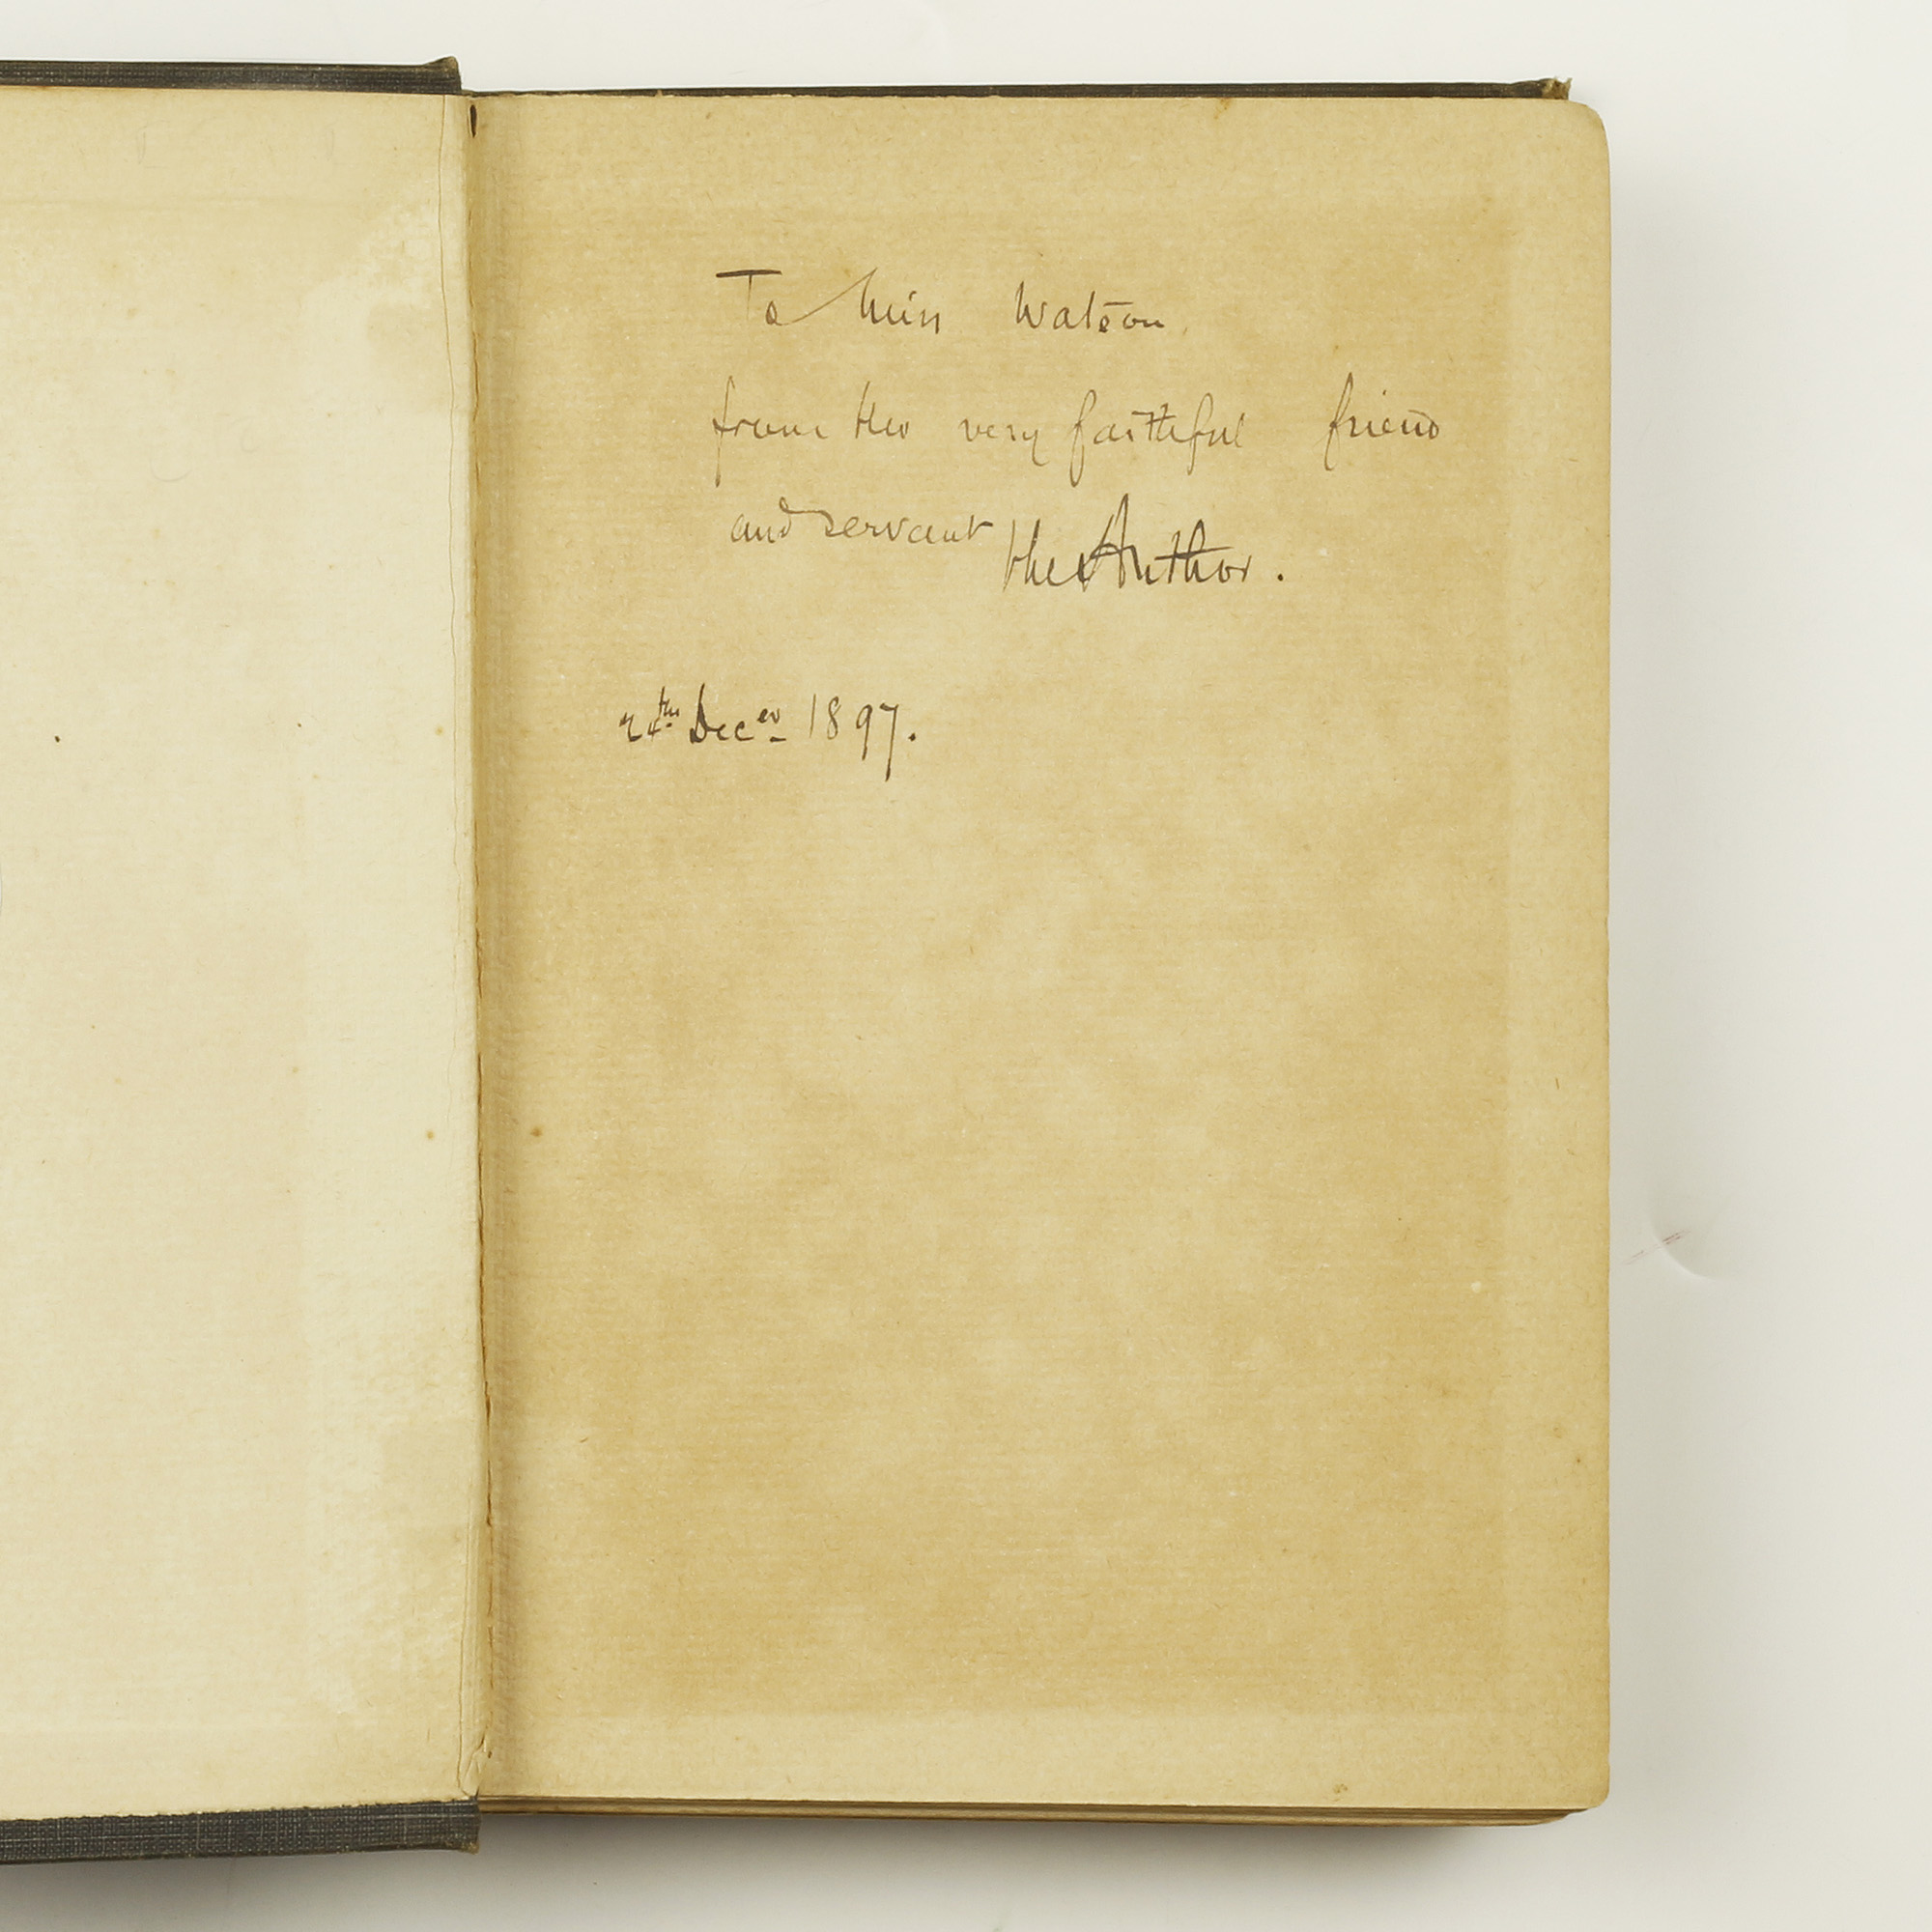 To Miss Watson
from her very faithful friend
and servant
the Author.
24th Decer 1897.